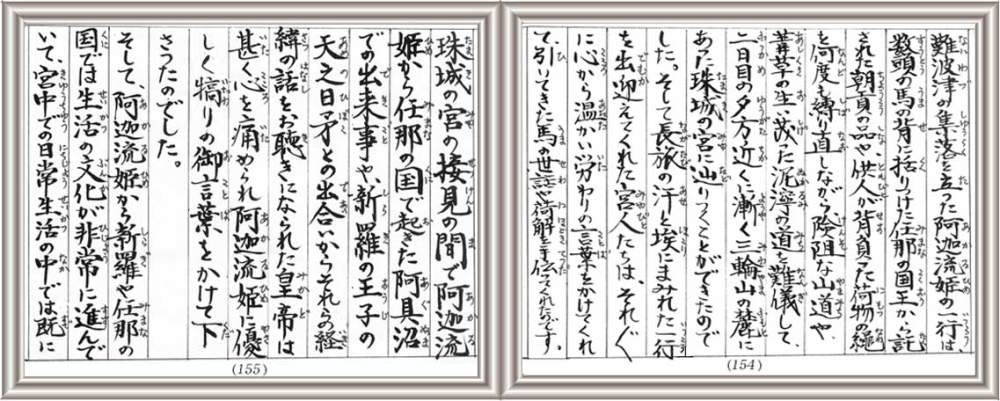 難波津の集落を立った阿迦流姫の一行は、
数頭の馬の背に括りつけた任那の国王から託
された朝貢の品や供人が背負った荷物の縄
を何度も縛り直しながら険阻な山道や、
葦草の生い茂た泥濘の道を難儀して、
二日目の夕方近くに漸く三輪山の麓に
あった珠城の宮に辿りつくことができたので
した。そして長旅の汗と埃にまみれた一行
を出迎えてくれた宮人たちは、それぐ
に心から温かい労わりの言葉をかけてくれ
て、引いてきた馬の世話や荷解を手伝てくれたのです。
(154)
珠城の宮の接見の間で阿迦流
姫から任那の国で起きた阿具沼
での出来事や、新羅の王子の
天之日矛との出合いからそれらの経
緯の話をお聴きになられた皇帝は
甚く心を痛められ阿迦流姫に優
しく犒りの御言葉をかけて下
さったのでした。
そして、阿迦流姫から新羅や任那の
国では生活の文化が非常に進んで
いて、宮中での日常生活の中では既に
(155)